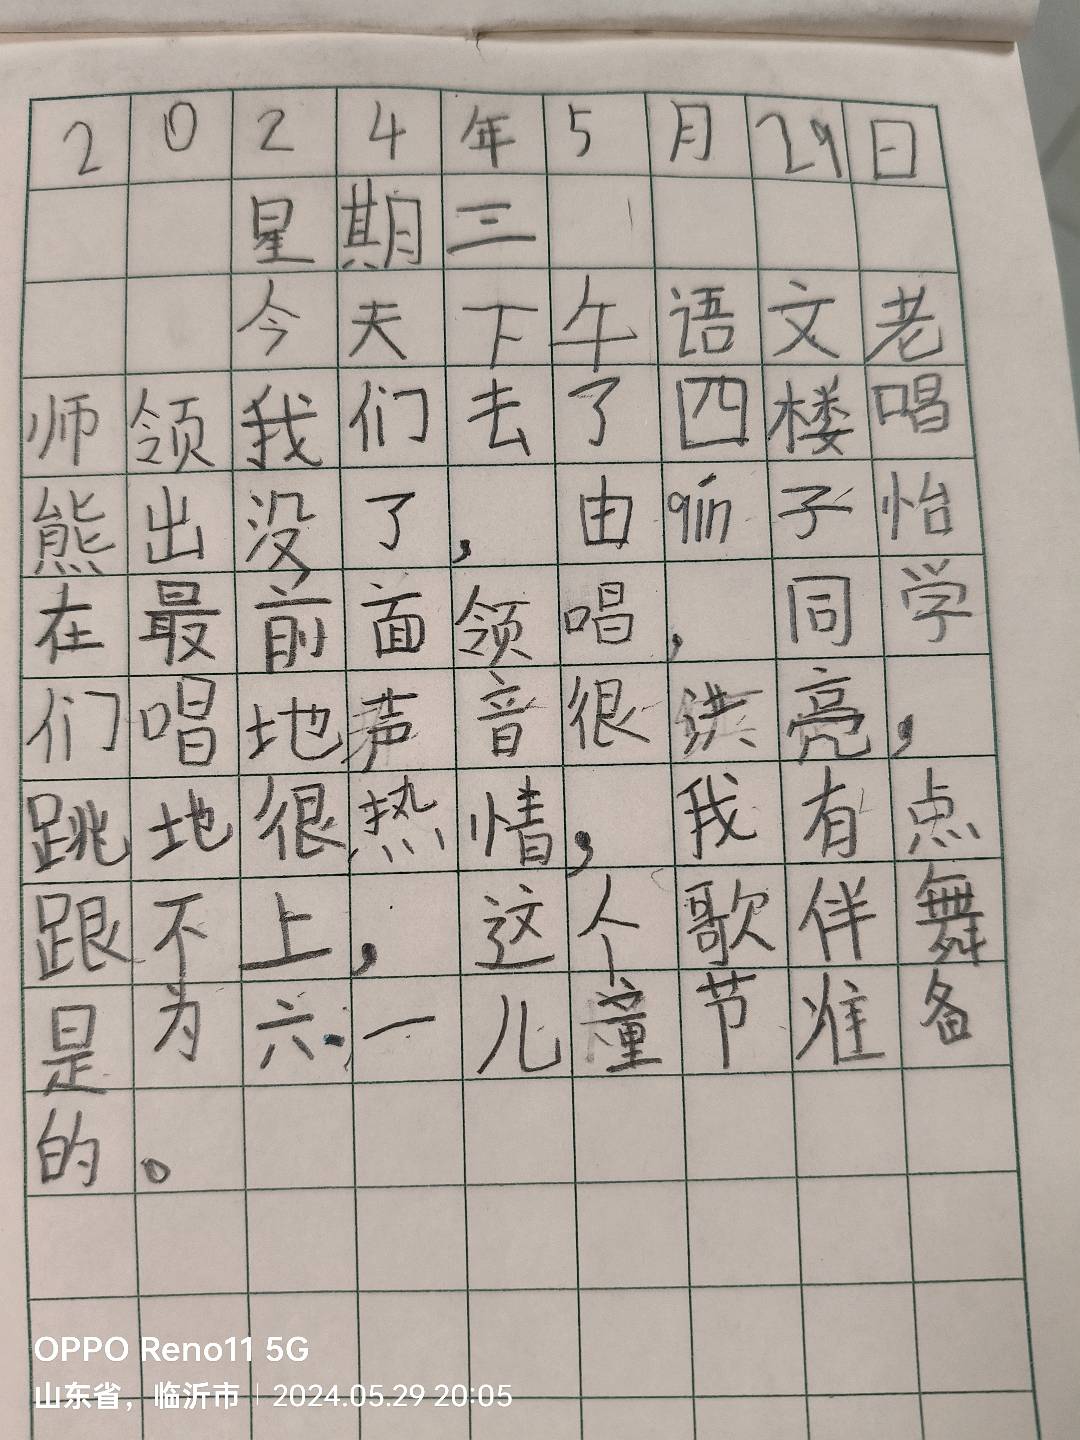 2024年5月29日
星期三
今天下午语文老
师领我们去了四楼唱
熊出没了,由qín子怡
在最前面领唱,同学
们唱地声音很洪亮,
跳地很热情,我有点
跟不上,这个歌伴舞
是为六一儿童节准备
的。
OPPO Reno11 5G
山东省，临沂市 | 2024.05.29 20:05